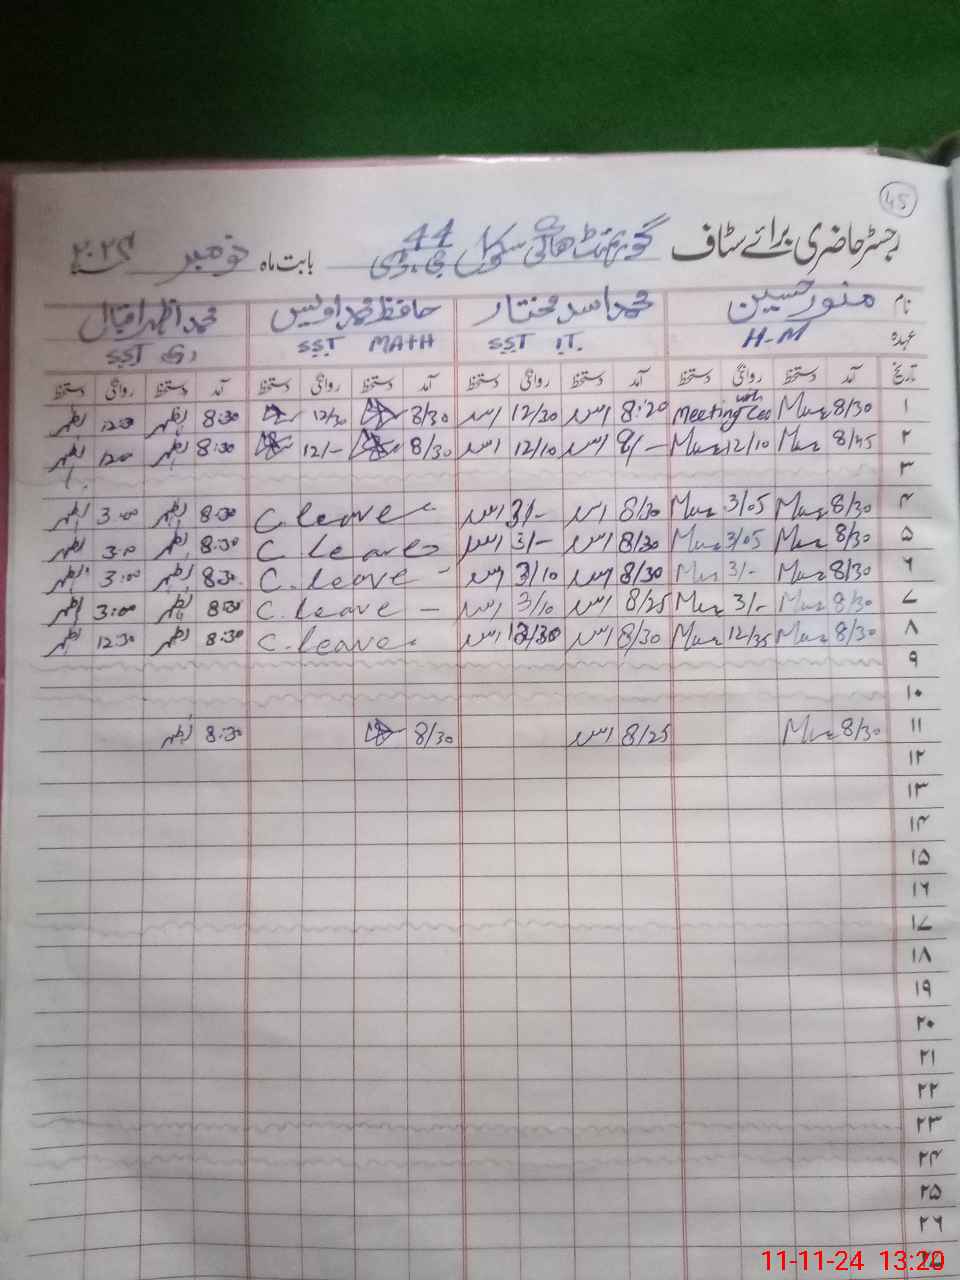 45
رجسٹر حاضری برائے سٹاف گورنمنٹ ہائی سکول 44 بابت ماہ نومبر ۲۰۲۴
نام منور حسین محمد اسد مختار حافظ محمد اویس محمد اظہر اقبال
عہدہ H-M SST IT. SST MATH SST
تاریخ آمد دستخط روانگی دستخط آمد دستخط روانگی دستخط آمد دستخط روانگی دستخط آمد دستخط روانگی دستخط
۱ 8/30 Mun Meeting with Ceo 8:20 اسد 12/30 اسد 8/30 12/30 8:30 اظہر 12:30 اظہر
۲ 8/45 Mun 12/10 Mun 8/- اسد 12/10 اسد 8/30 12/- 8:30 اظہر 12:00 اظہر
۳
۴ 8/30 Mun 3/05 Mun 8/30 اسد 3/- اسد C. leave 8:30 اظہر 3:00 اظہر
۵ 8/30 Mun 3/05 Mun 8/30 اسد 3/- اسد C leave 8:30 اظہر 3:0 اظہر
۶ 8/30 Mun 3/- Mun 8/30 اسد 3/10 اسد C. leave - 8:30 اظہر 3:00 اظہر
۷ 8/30 Mun 3/- Mun 8/25 اسد 3/10 اسد C. leave - 8:30 اظہر 3:00 اظہر
۸ 8/30 Mun 12/35 Mun 8/30 اسد 12/30 اسد C. leave 8:30 اظہر 12:30 اظہر
۹
۱۰
۱۱ 8/30 Mun 8/25 اسد 8/30 8:30 اظہر
۱۲
۱۳
۱۴
۱۵
۱۶
۱۷
۱۸
۱۹
۲۰
۲۱
۲۲
۲۳
۲۴
۲۵
۲۶
۲۷
11-11-24 13:20